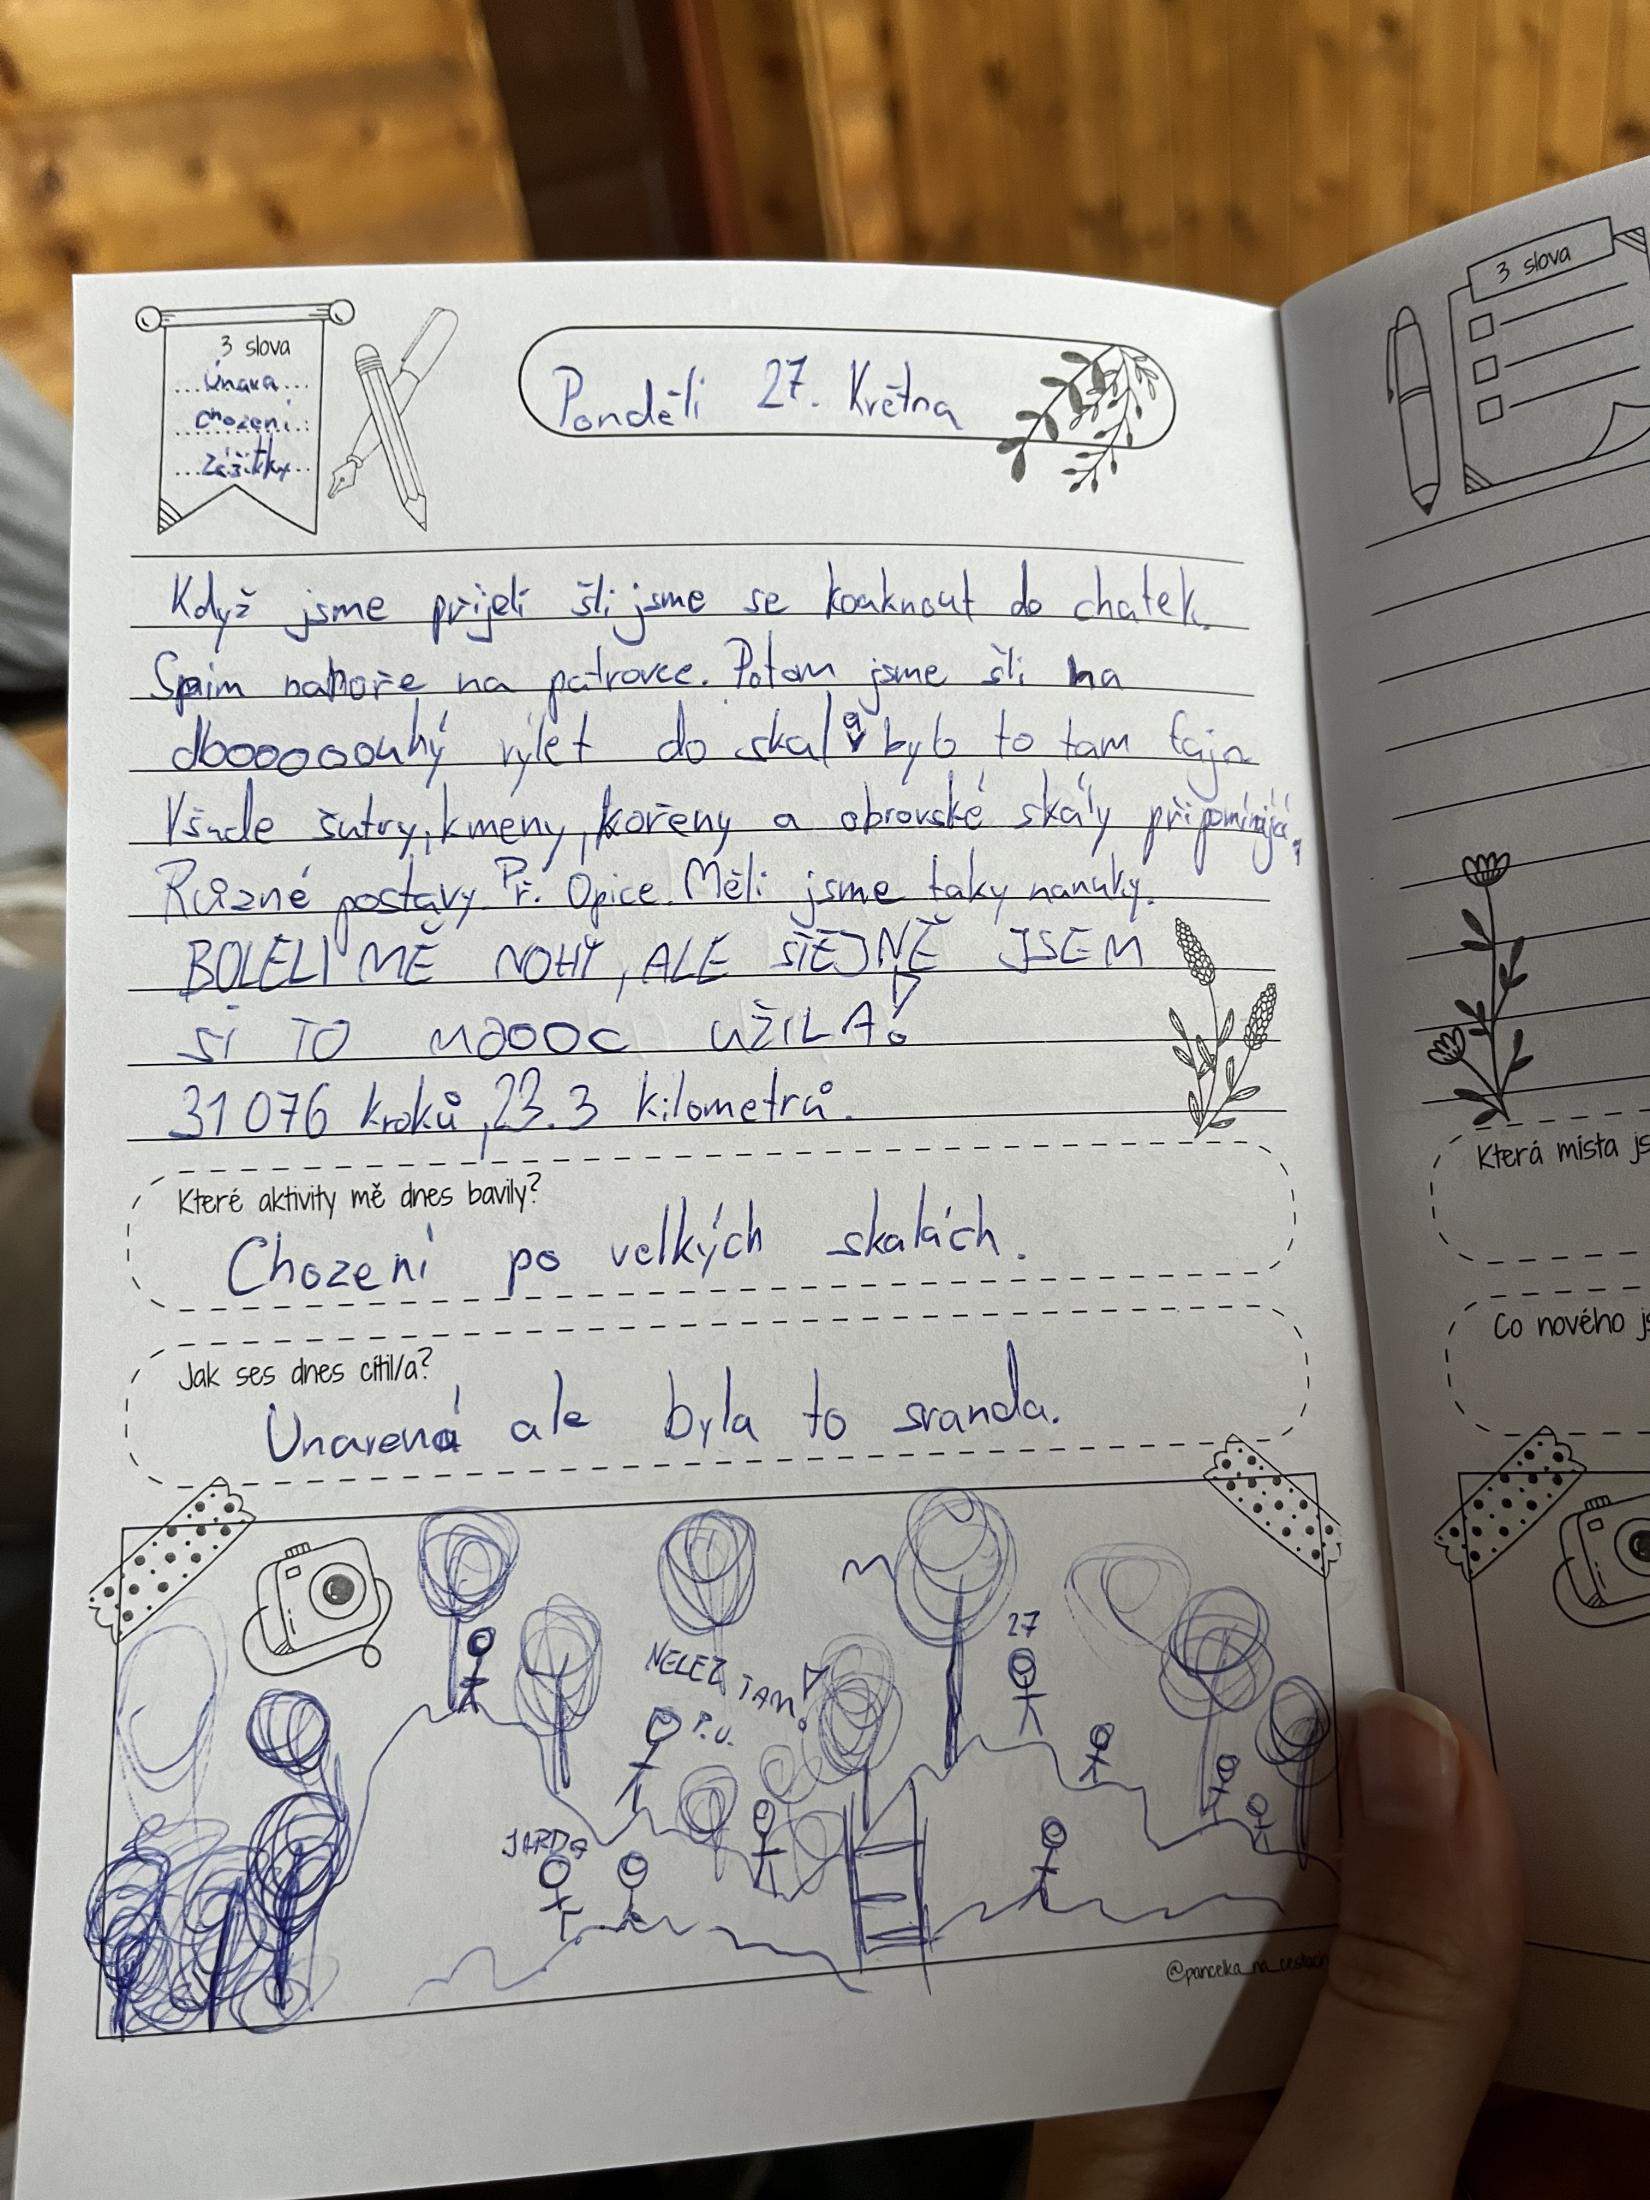 3 slova
Únava
Chození
Zážitky
Pondělí 27. Května
Když jsme prijeli šli jsme se kouknout do chatek.
Spím nahoře na patrovce. Potom jsme šli na
dlooooouhý výlet do skal a bylo to tam fajn
Všude šutry, kmeny, kořeny a obrovské skály připomínající
Různé postavy. Př. Opice. Měli jsme taky nanuky.
BOLELI MĚ NOHY, ALE STEJNĚ JSEM
SI TO MOOOC UŽILA!
31 076 kroků, 23.3 kilometrů.
Které aktivity mě dnes bavily?
Chození po velkých skalách.
Jak ses dnes cítil/a?
Unavená ale byla to sranda.
NELEZ TAM!
P.U.
27
JARDA
@pancelka_na_cestach
3 slova
Která místa js
Co nového js